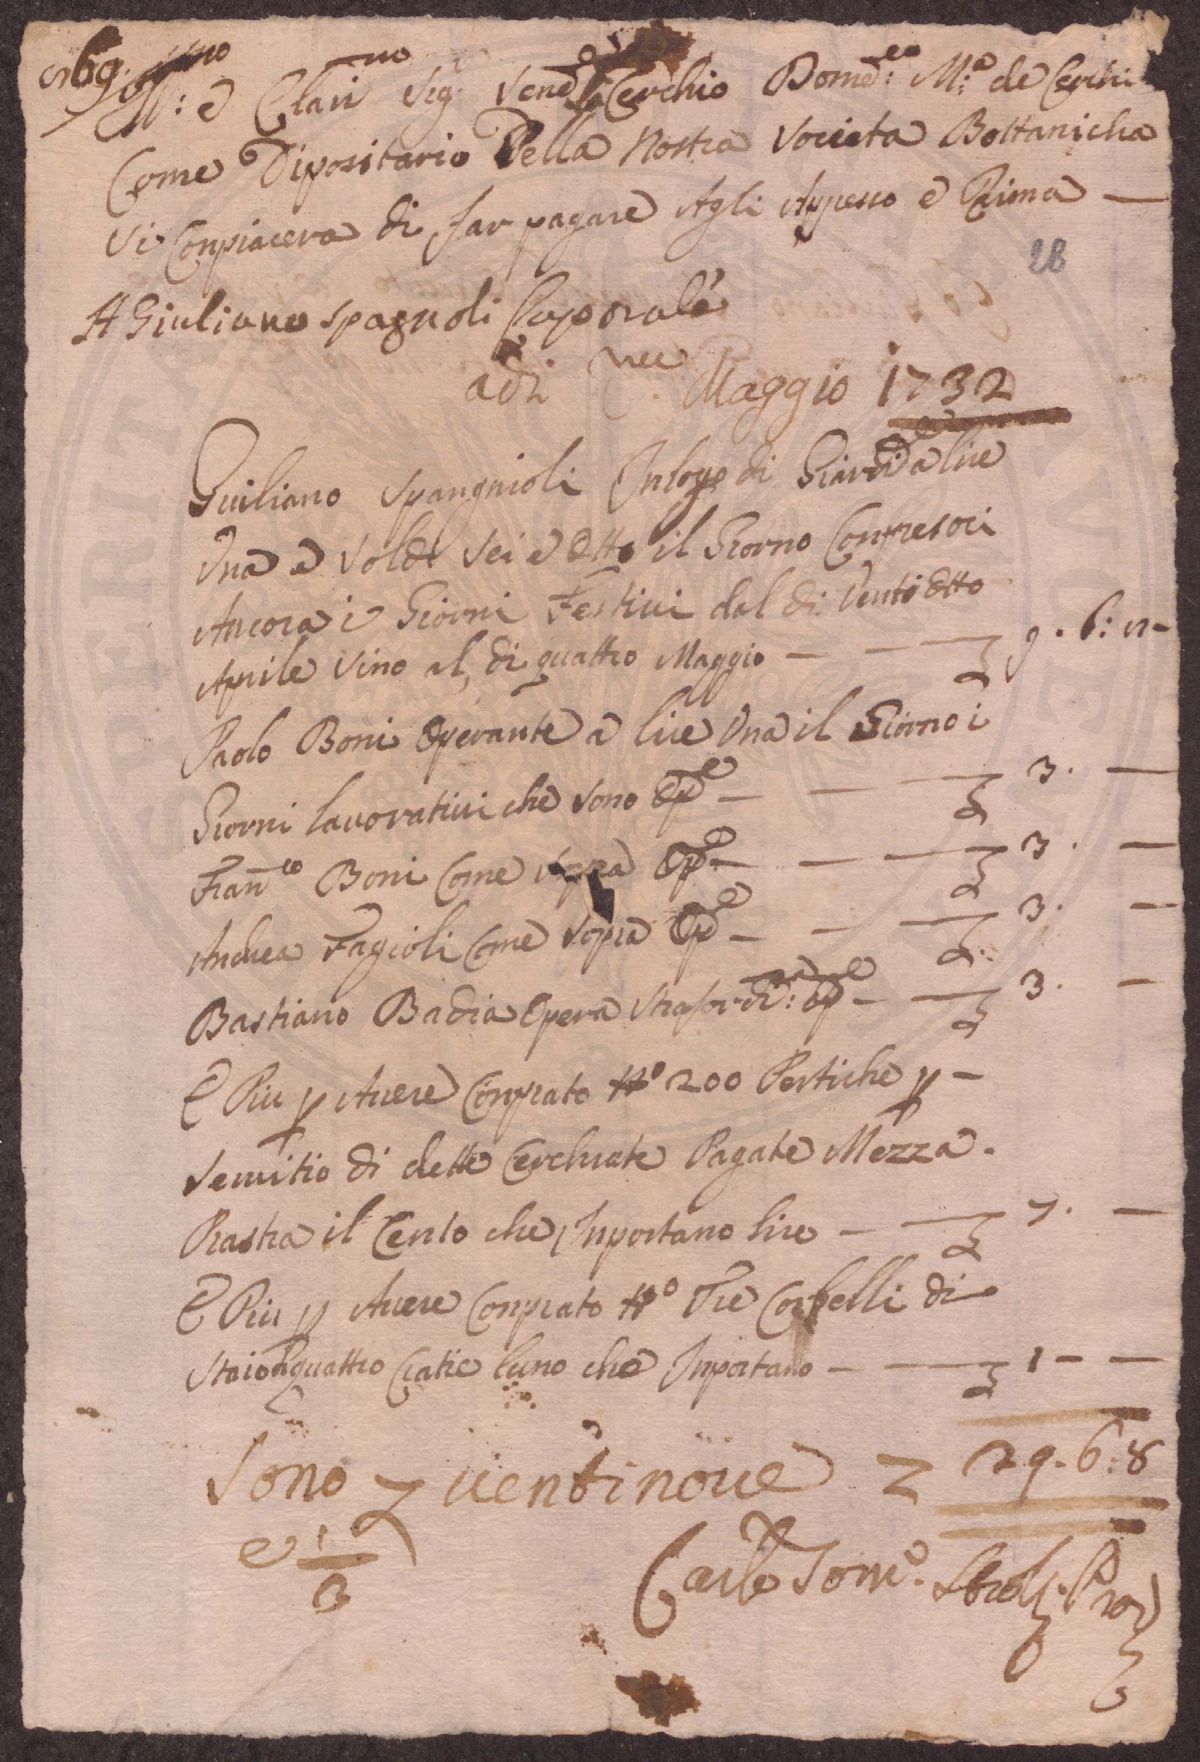 169
Ill:mo e Clari:mo Sig: Vené Cerchio Domé:co M:a de Cerchi
Come Dipositario Della Nostra Societa Bottanicha
Si Conpiacera di far pagare Agli Appresso e Prima —
28
A Giuliano Spagnoli Caporale
adi Maggio 1732
Guiliano Spangnioli In logo di Giardi a lire
Una e Soldi Sei e Otto il Giorno Conpresoci
Ancora i Giorni Festivi dal di Vento Otto
Aprile Sino al di quattro Maggio — — — 9. 6: 8 -
Paolo Boni Operante a lire Una il Giorno i
Giorni lavorativi che Sono Op:e — — — 3. —
Fran:co Boni Come Sopra Op:e — — — 3. —
Andrea Fagioli Come Sopra Op:e — — — 3. —
Bastiano Badia Opera Strasordi:a Op:e — — 3. —
E Piu p Avere Conprato N:o 200 Pertiche p —
Servitio di dette Cerchiate Pagate Mezza .
Piastra il Cento che Inportano lire — — 7. —
E Piu p Avere Conprato N:o Tre Corbelli di
Staio quattro Cratie luno che Inportano — — 1 - —
Sono ventinove 29. 6: 8
e 1/3
Carlo Tom:o